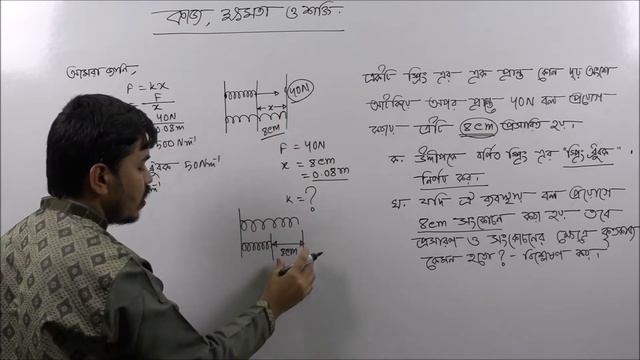 কাজ, ক্ষমতা ও শক্তি
আমরা জানি,
F = kx
F
x
40N
0.08m
500 Nm⁻¹
ধ্রুবক 50Nm⁻¹
40N
x
8cm
F = 40N
x = 8cm
= 0.08m
k = ?
8cm
একটি স্প্রিং এর এক প্রান্ত কোন দৃঢ় অংশে
আটকিয়ে অপর প্রান্তে 40N বল প্রয়োগে
এটি 8cm প্রসারিত হয়।
ক. উদ্দীপকে বর্ণিত স্প্রিং এর "স্প্রিং ধ্রুবক"
নির্ণয় কর।
খ. যদি ঐ বল প্রয়োগে
8cm সংকোচন করা হয় তবে
প্রসারণ ও সংকোচনের ক্ষেত্রে কৃতকাজ
কেমন হবে? - বিশ্লেষণ কর।